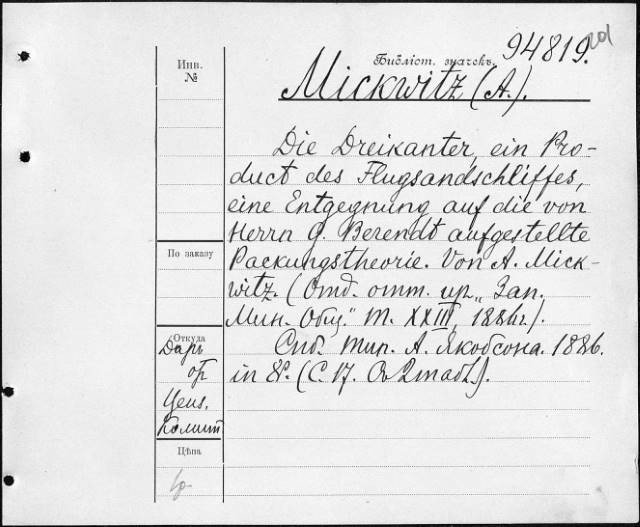 Инв.
№
Библіот. значекъ. 94819.
Mickwitz (A.).
Die Dreikanter, ein Pro-
duct des Flugsandschliffes,
eine Entgegnung auf die von
Herrn G. Berendt aufgestellte
Packungstheorie. Von A. Mick-
witz. (Отд. отт. изъ „Зап.
Мин. Общ." т. XXIII, 1886г.).
Спб. тип. А. Якобсона. 1886.
in 8º. (С. 17. Съ 2 табл.).
По заказу
Откуда
Даръ
Ценз.
Комит
Цѣна